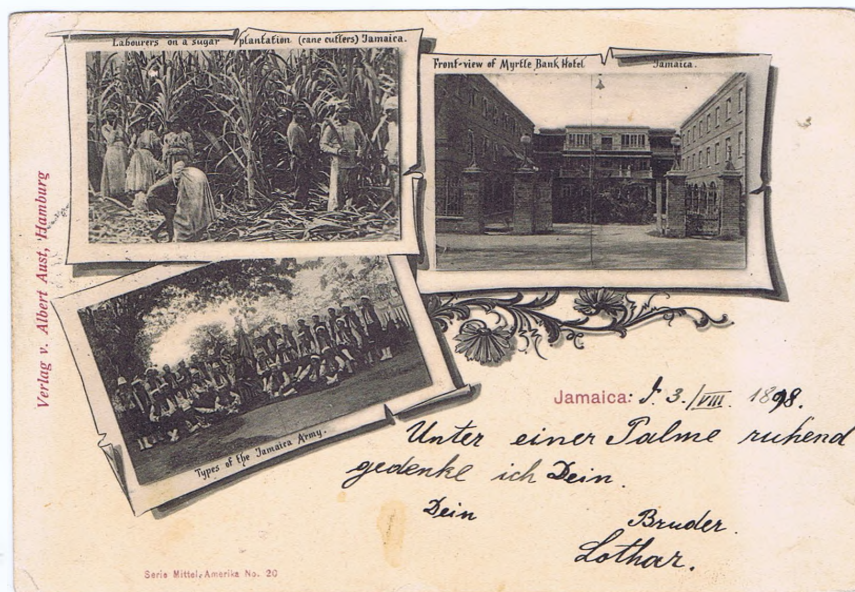 Labourers on a sugar plantation (cane cutters) Jamaica.
Front-view of Myrtle Bank Hotel. Jamaica.
Verlag v. Albert Aust, Hamburg
Types of the Jamaica Army.
Jamaica: J. 3./VIII. 1898.
Unter einer Palme ruhend
gedenke ich Dein.
Dein
Bruder.
Lothar.
Serie Mittel-Amerika No. 20